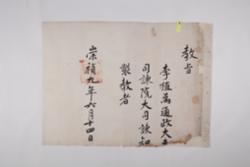 教旨
李植爲通政大夫
司諫院大司諫知
製教者
崇禎九年八月十四日